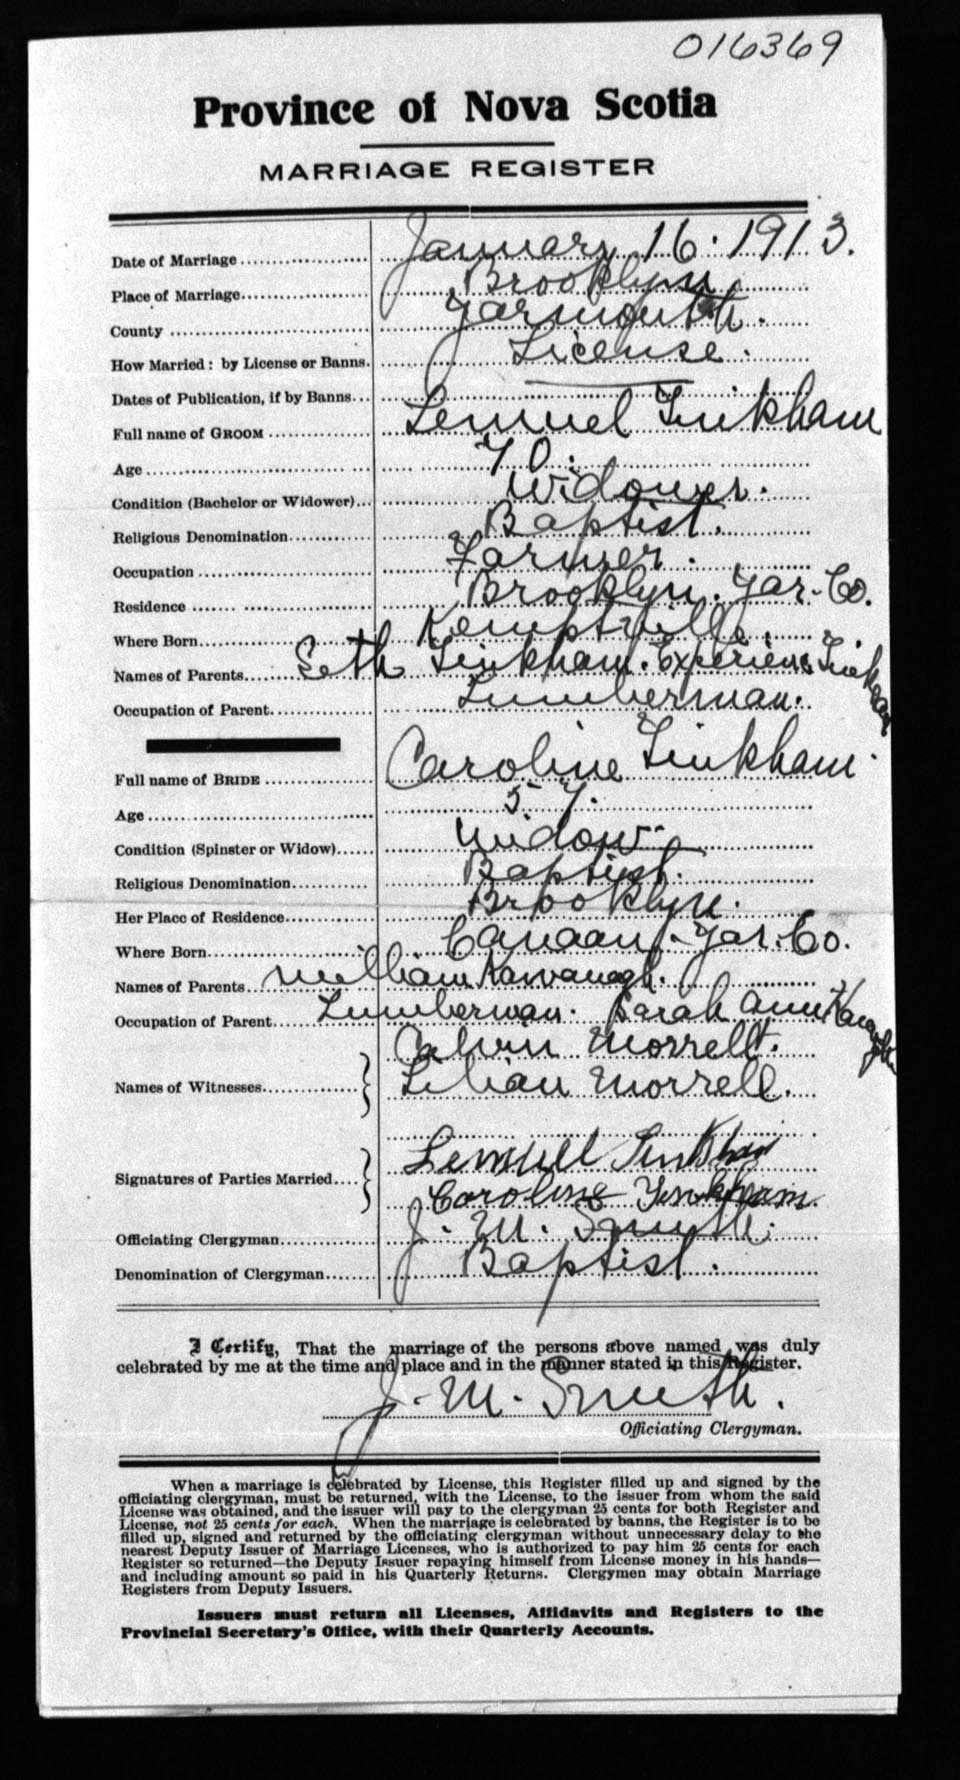 016369
Province of Nova Scotia
MARRIAGE REGISTER
Date of Marriage January 16. 1913.
Place of Marriage Brooklyn
County Yarmouth.
How Married: by License or Banns. License.
Dates of Publication, if by Banns
Full name of GROOM Lemuel Tinkham
Age 70.
Condition (Bachelor or Widower) Widower.
Religious Denomination Baptist.
Occupation Farmer.
Residence Brooklyn. Yar. Co.
Where Born Kemptville.
Names of Parents Seth Tinkham. Experience Tinkham
Occupation of Parent Lumberman.
Full name of BRIDE Caroline Tinkham.
Age 57.
Condition (Spinster or Widow) Widow.
Religious Denomination Baptist.
Her Place of Residence Brooklyn.
Where Born Canaan. Yar. Co.
Names of Parents William Kavanagh.
Occupation of Parent Lumberman. Sarah Ann
Calvin Morrell.
Names of Witnesses Lilian Morrell.
Signatures of Parties Married Lemuel Tinkham
Caroline Tinkham.
Officiating Clergyman J. M. Smith.
Denomination of Clergyman Baptist.
I Certify, That the marriage of the persons above named was duly
celebrated by me at the time and place and in the manner stated in this Register.
J. M. Smith.
Officiating Clergyman.
When a marriage is celebrated by License, this Register filled up and signed by the
officiating clergyman, must be returned, with the License, to the issuer from whom the said
License was obtained, and the issuer will pay to the clergyman 25 cents for both Register and
License, not 25 cents for each. When the marriage is celebrated by banns, the Register is to be
filled up, signed and returned by the officiating clergyman without unnecessary delay to the
nearest Deputy Issuer of Marriage Licenses, who is authorized to pay him 25 cents for each
Register so returned—the Deputy Issuer repaying himself from License money in his hands—
and including amount so paid in his Quarterly Returns. Clergymen may obtain Marriage
Registers from Deputy Issuers.
Issuers must return all Licenses, Affidavits and Registers to the
Provincial Secretary's Office, with their Quarterly Accounts.